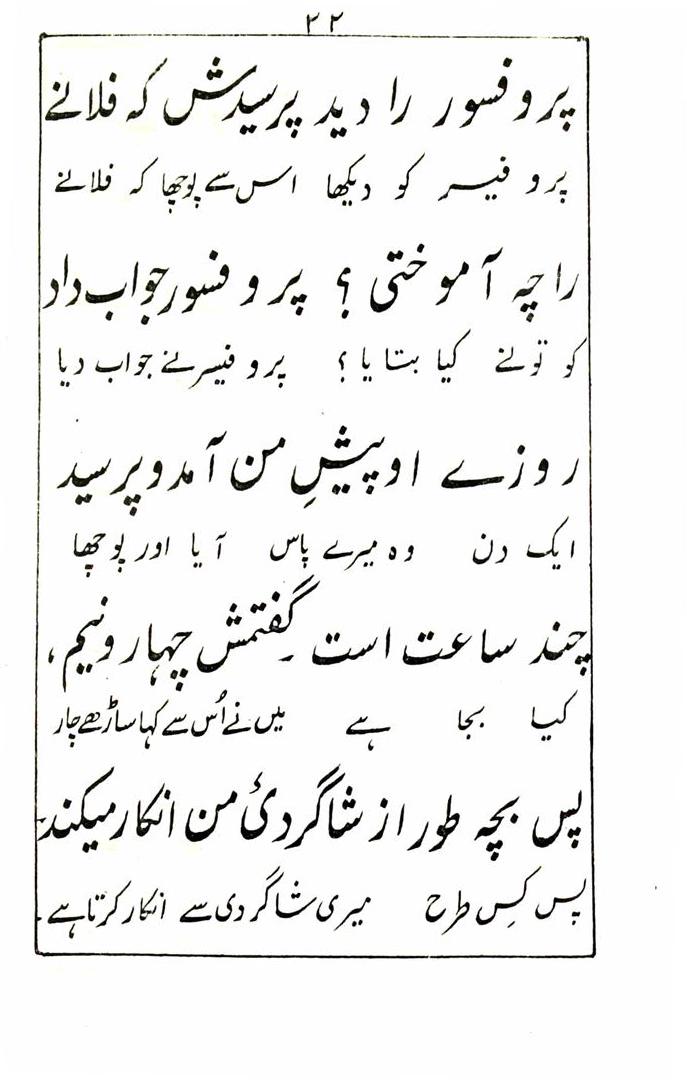 ۲۲
پروفسور را دید پرسیدش که فلانے
پروفیسر کو دیکھا اس سے پوچھا کہ فلانے
را چه آموختی ؟ پروفسور جواب داد
کو تونے کیا بتایا ؟ پروفیسر نے جواب دیا
روزے او پیشِ من آمد و پرسید
ایک دن وہ میرے پاس آیا اور پوچھا
چند ساعت است ۔ گفتمش چهار و نیم ،
کیا بجا ہے میں نے اُس سے کہا ساڑھے چار
پس بچه طور از شاگردئ من انکار میکند۔
پس کِس طرح میری شاگردی سے انکار کرتا ہے ۔